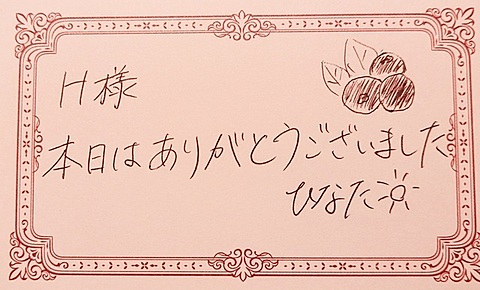 H様
本日はありがとうございました
ひなた